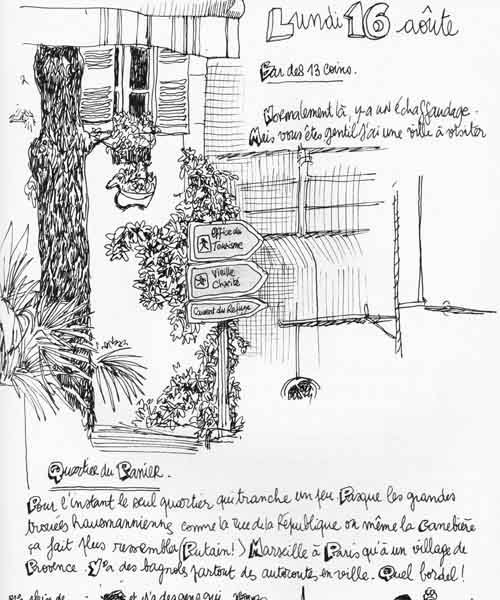 Lundi 16 aoûte
Bar des 13 coins.
Normalement là, y a un échaffaudage.
Mais vous êtes gentil j'ai une ville à visiter
Office du
Tourisme
Vieille
Charité
Couvent du Refuge
Quartier du Panier.
Pour l'instant le seul quartier qui tranche un peu. Pasque les grandes
trouées hausmannienne comme la rue de la République ou même la Canebière
ça fait plus ressembler (Putain!) Marseille à Paris qu'à un village de
Provence. Y'a des bagnoles partout des autoroutes en ville. Quel bordel!
et y'a des gens qui